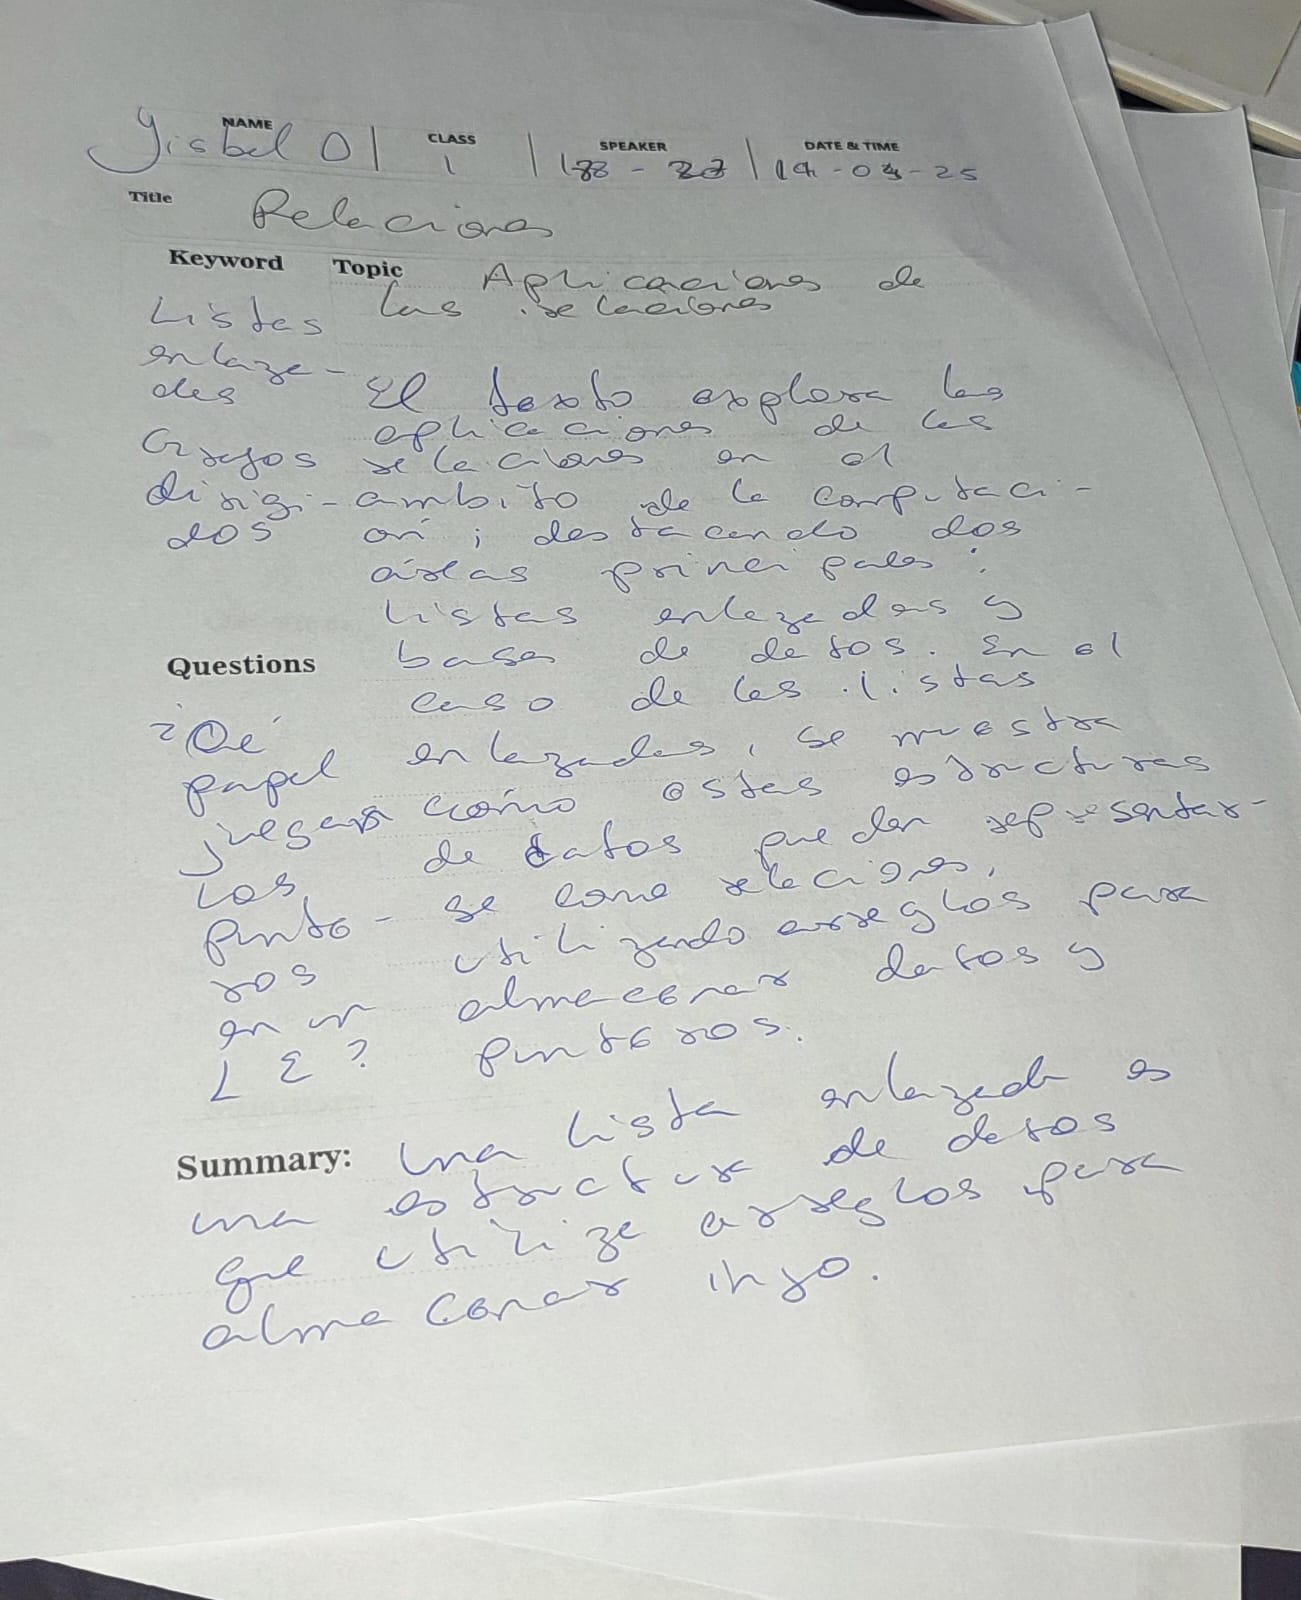 NAME CLASS SPEAKER DATE & TIME
Yisbel O 1 14-04-25
Title Relaciones
Keyword Topic Aplicaciones de
las relaciones
Listas
enlaza-
das
Grafos
dirigi-
dos
El texto explora las
aplicaciones de las
relaciones en el
ambito de la computaci-
ón; destacando dos
áreas principales:
Listas enlazadas y
bases de datos. En el
caso de las listas
enlazadas, se muestra
como estas estructuras
de datos pueden representar-
se como relaciones,
utilizando arreglos para
almacenar datos y
punteros.
Questions
¿Qé
papel
juegan
los
punte-
ros
en un
LE?
Summary: Una lista enlazada es
una estructura de datos
que utiliza arreglos para
almacenar info.